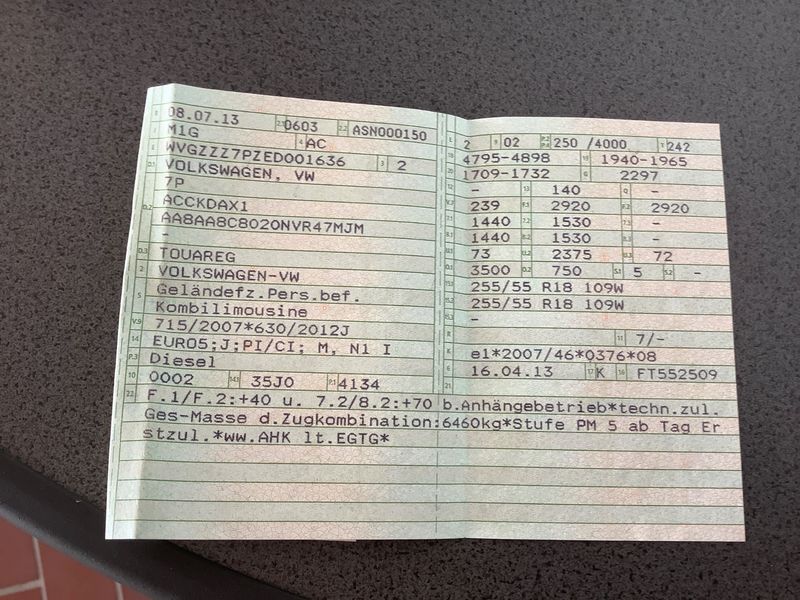 08.07.13 0603 ASN000150
M1G AC
WVGZZZ7PZED001636 3 2
VOLKSWAGEN, VW
7P
ACCKDAX1
AA8AA8C8020NVR47MJM
-
TOUAREG
VOLKSWAGEN-VW
Geländefz.Pers.bef.
Kombilimousine
715/2007*630/2012J
EURO5;J;PI/CI; M, N1 I
Diesel
10 0002 35J0 4134
2 02 250 /4000 242
4795-4898 1940-1965
1709-1732 2297
- 140 -
239 2920 2920
1440 1530 -
1440 1530 -
73 2375 72
3500 750 5 -
255/55 R18 109W
255/55 R18 109W
-
7/-
K e1*2007/46*0376*08
6 16.04.13 K FT552509
21
22 F.1/F.2:+40 u. 7.2/8.2:+70 b.Anhängebetrieb*techn.zul.
Ges-Masse d.Zugkombination:6460kg*Stufe PM 5 ab Tag Er
stzul.*ww.AHK lt.EGTG*